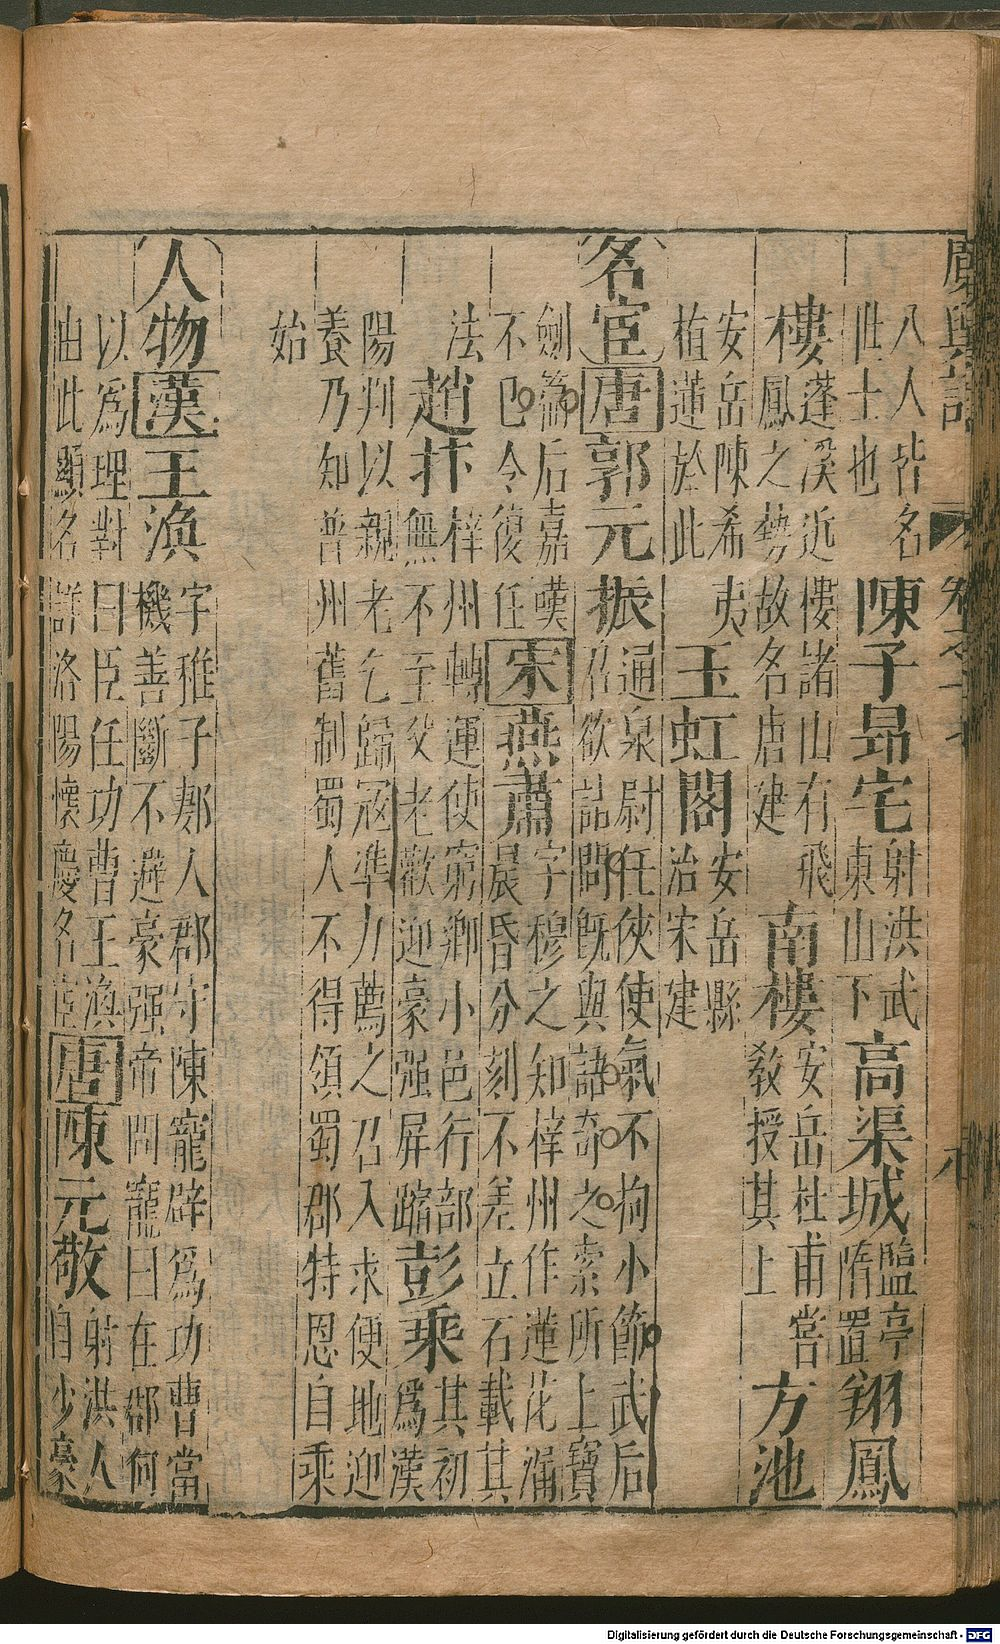 廣輿記 卷之十七 八
八人皆名
世士也
陳子昂宅
射洪武
東山下
高渠城
鹽亭
隋置
翔鳳
樓
蓬溪近樓諸山有飛
鳳之勢故名唐建
南樓
安岳杜甫嘗
教授其上
方池
安岳陳希夷
植蓮於此
玉虹閣
安岳縣
治宋建
名宦 唐 郭元振
通泉尉任俠使氣不拘小節武后
召欲詰問既與語奇之索所上寶
劍篇后嘉嘆
不已令復任
宋 燕肅
字穆之知梓州作蓮花漏
晨昏分刻不差立石載其
法
趙抃
梓州轉運使窮鄉小邑行部
無不至父老歡迎豪强屏蹤
彭乘
其初
爲漢
陽判以親老乞歸寇準力薦之召入求便地迎
養乃知普州舊制蜀人不得領蜀郡特恩自乘
始
人物 漢 王渙
字稚子郪人郡守陳寵辟爲功曹當
機善斷不避豪强帝問寵曰在郡何
以爲理對曰臣任功曹王渙
由此顯名詳洛陽懷慶名宦
唐 陳元敬
射洪人
自少豪
Digitalisierung gefördert durch die Deutsche Forschungsgemeinschaft - DFG